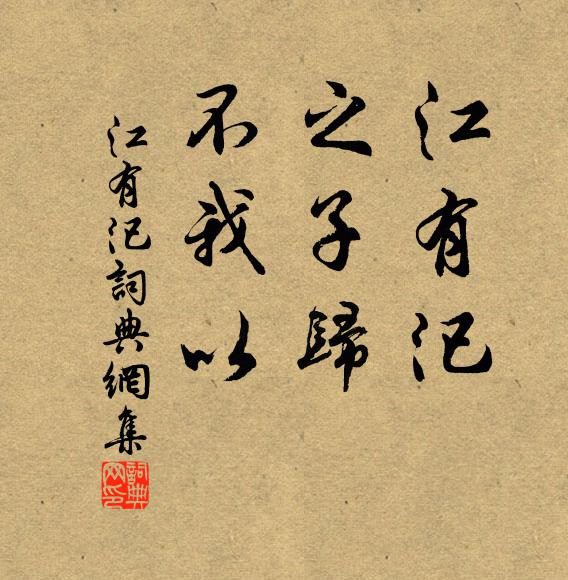 江有汜
之子歸
不我以
江有汜詞典網集
詞典网印